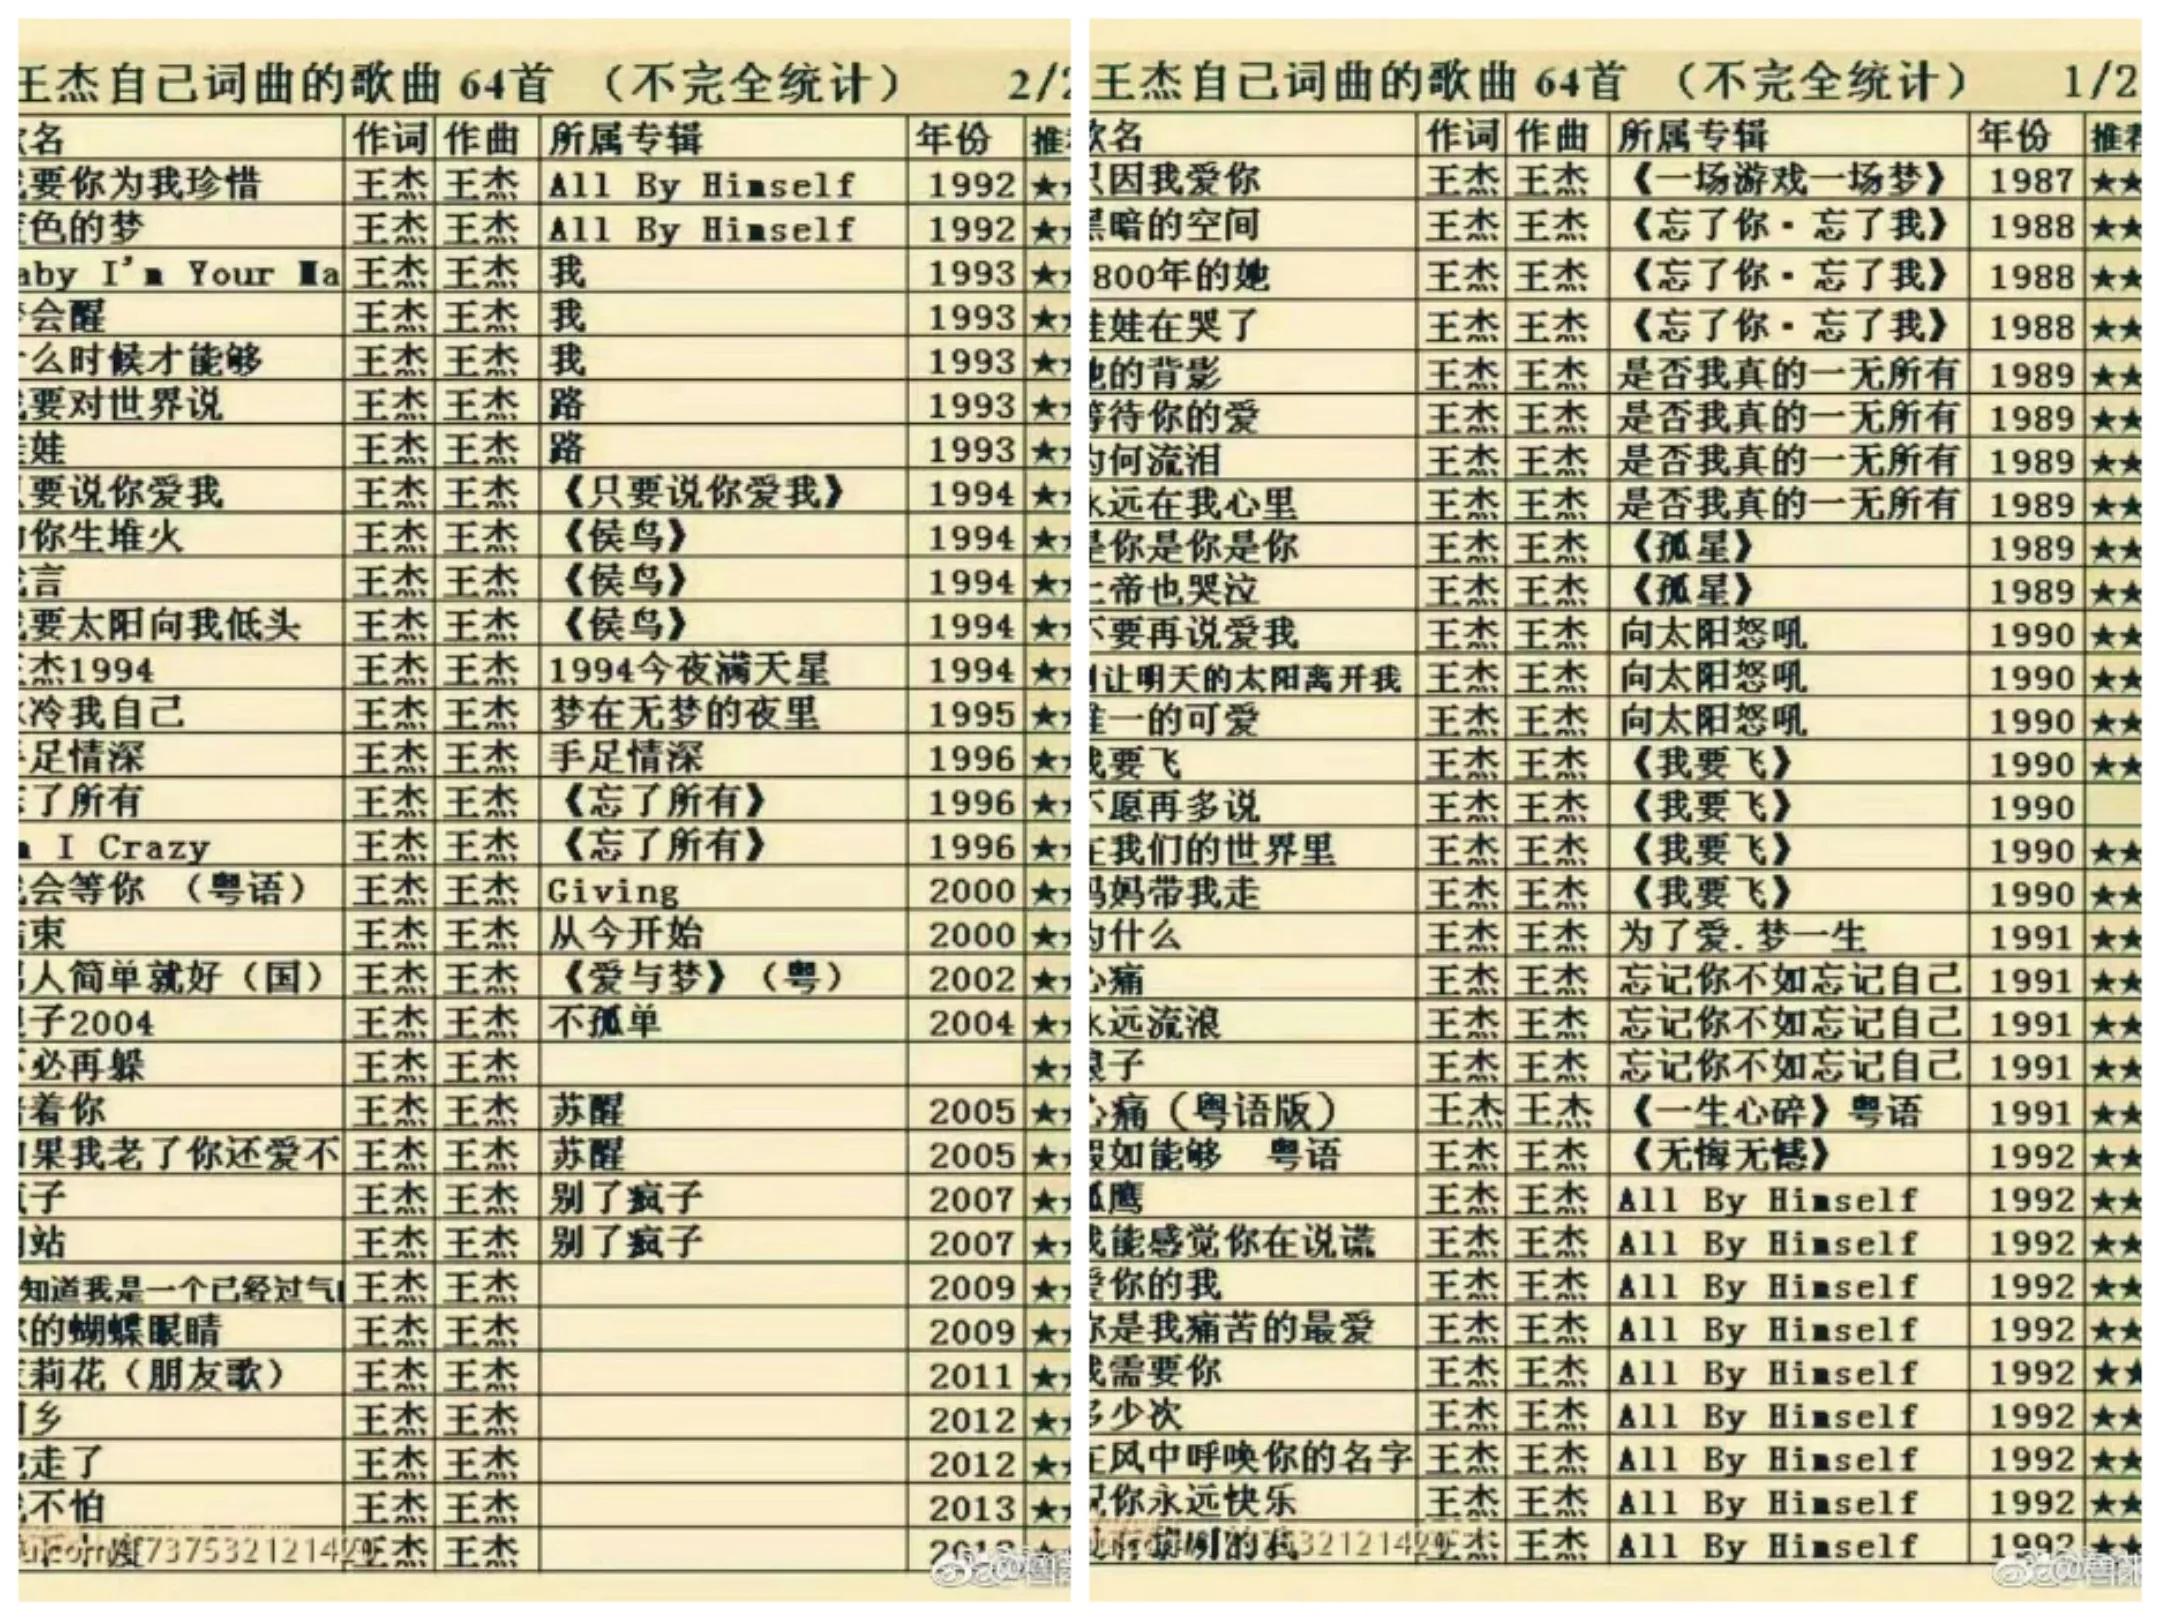 王杰自己词曲的歌曲 64首 （不完全统计） 2/2
名 作词 作曲 所属专辑 年份 推
要你为我珍惜 王杰 王杰 All By Himself 1992 ★
色的梦 王杰 王杰 All By Himself 1992 ★★
aby I'm Your Ma 王杰 王杰 我 1993 ★
会醒 王杰 王杰 我 1993 ★
么时候才能够 王杰 王杰 我 1993 ★
要对世界说 王杰 王杰 路 1993 ★
娃 王杰 王杰 路 1993 ★
要说你爱我 王杰 王杰 《只要说你爱我》 1994 ★
你生堆火 王杰 王杰 《侯鸟》 1994 ★
言 王杰 王杰 《侯鸟》 1994 ★
要太阳向我低头 王杰 王杰 《侯鸟》 1994 ★
杰1994 王杰 王杰 1994今夜满天星 1994 ★
冷我自己 王杰 王杰 梦在无梦的夜里 1995 ★
足情深 王杰 王杰 手足情深 1996 ★
了所有 王杰 王杰 《忘了所有》 1996 ★
I Crazy 王杰 王杰 《忘了所有》 1996 ★
会等你 （粤语） 王杰 王杰 Giving 2000 ★
束 王杰 王杰 从今开始 2000 ★
人简单就好（国） 王杰 王杰 《爱与梦》（粤） 2002 ★
子2004 王杰 王杰 不孤单 2004 ★
必再躲 王杰 王杰 ★
着你 王杰 王杰 苏醒 2005 ★
果我老了你还爱不 王杰 王杰 苏醒 2005 ★
子 王杰 王杰 别了疯子 2007 ★
站 王杰 王杰 别了疯子 2007 ★
知道我是一个已经过气 王杰 王杰 2009 ★
的蝴蝶眼睛 王杰 王杰 2009 ★
莉花（朋友歌） 王杰 王杰 2011 ★
乡 王杰 王杰 2012 ★
走了 王杰 王杰 2012 ★
不怕 王杰 王杰 2013 ★
王杰 王杰
王杰自己词曲的歌曲 64首 （不完全统计） 1/2
名 作词 作曲 所属专辑 年份 推荐
只因我爱你 王杰 王杰 《一场游戏一场梦》 1987 ★★
黑暗的空间 王杰 王杰 《忘了你·忘了我》 1988 ★★
800年的她 王杰 王杰 《忘了你·忘了我》 1988 ★★
娃娃在哭了 王杰 王杰 《忘了你·忘了我》 1988 ★★
她的背影 王杰 王杰 是否我真的一无所有 1989 ★★
等待你的爱 王杰 王杰 是否我真的一无所有 1989 ★★
为何流泪 王杰 王杰 是否我真的一无所有 1989 ★★
永远在我心里 王杰 王杰 是否我真的一无所有 1989 ★★
是你是你是你 王杰 王杰 《孤星》 1989 ★★
上帝也哭泣 王杰 王杰 《孤星》 1989 ★★
不要再说爱我 王杰 王杰 向太阳怒吼 1990 ★★
别让明天的太阳离开我 王杰 王杰 向太阳怒吼 1990 ★★
唯一的可爱 王杰 王杰 向太阳怒吼 1990 ★★
我要飞 王杰 王杰 《我要飞》 1990 ★★
不愿再多说 王杰 王杰 《我要飞》 1990
在我们的世界里 王杰 王杰 《我要飞》 1990 ★★
妈妈带我走 王杰 王杰 《我要飞》 1990 ★★
为什么 王杰 王杰 为了爱.梦一生 1991 ★★
心痛 王杰 王杰 忘记你不如忘记自己 1991 ★★
永远流浪 王杰 王杰 忘记你不如忘记自己 1991 ★★
浪子 王杰 王杰 忘记你不如忘记自己 1991 ★★
心痛（粤语版） 王杰 王杰 《一生心碎》粤语 1991 ★★
假如能够 粤语 王杰 王杰 《无悔无憾》 1992 ★★
孤鹰 王杰 王杰 All By Himself 1992 ★★
我能感觉你在说谎 王杰 王杰 All By Himself 1992 ★★
爱你的我 王杰 王杰 All By Himself 1992 ★★
你是我痛苦的最爱 王杰 王杰 All By Himself 1992 ★★
我需要你 王杰 王杰 All By Himself 1992 ★★
多少次 王杰 王杰 All By Himself 1992 ★★
在风中呼唤你的名字 王杰 王杰 All By Himself 1992 ★★
祝你永远快乐 王杰 王杰 All By Himself 1992 ★★
的我 王杰 王杰 All By Himself 1992 ★★